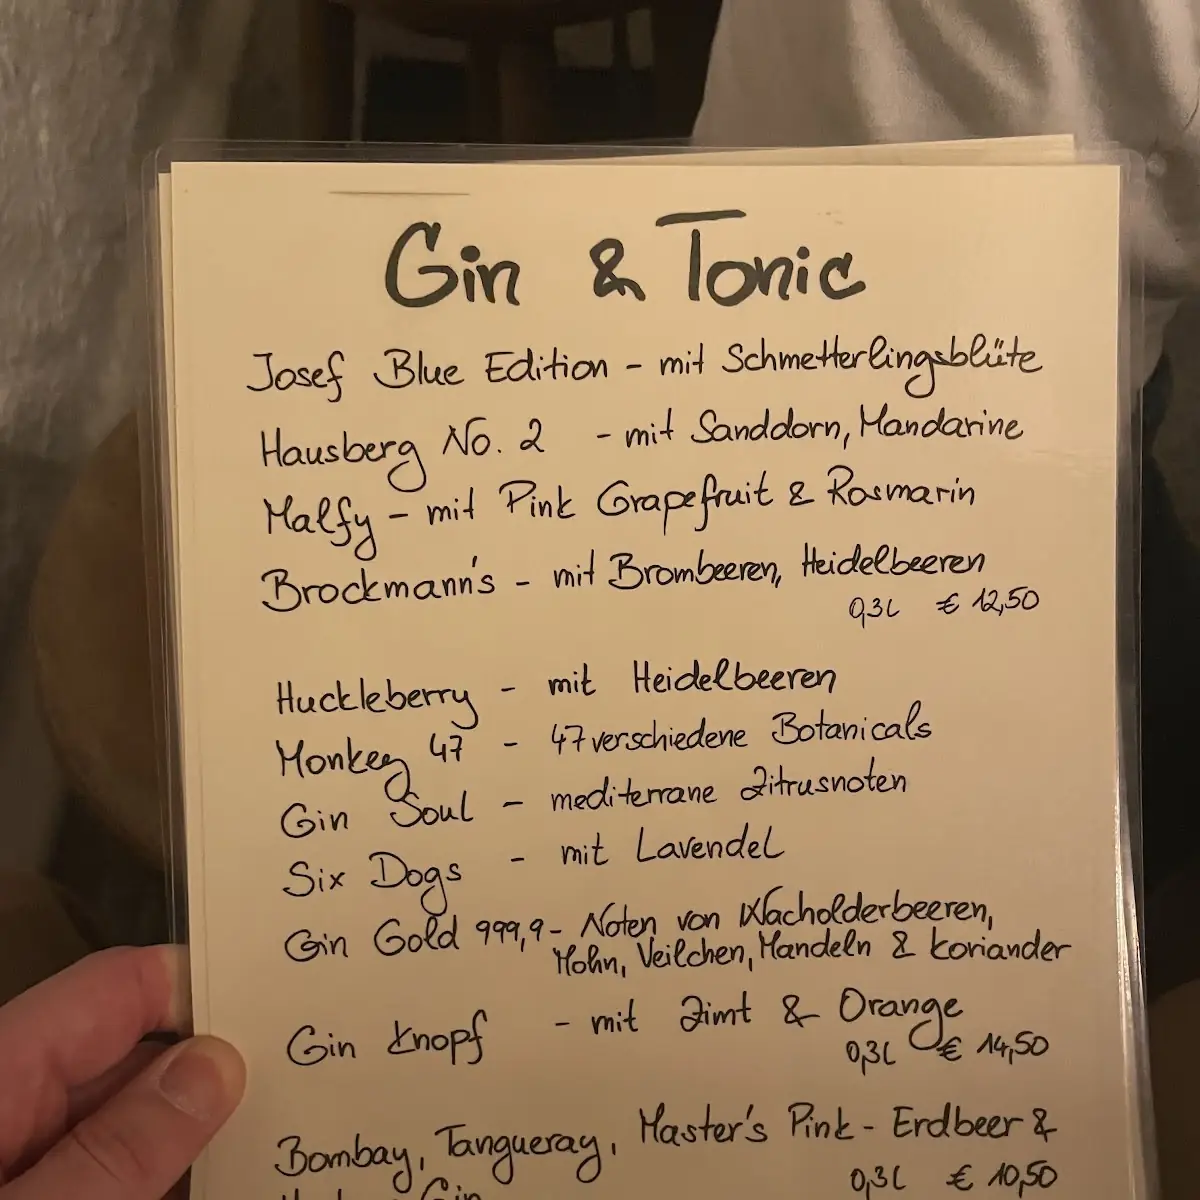 Gin & Tonic
Josef Blue Edition - mit Schmetterlingsblüte
Hausberg No. 2 - mit Sanddorn, Mandarine
Malfy - mit Pink Grapefruit & Rosmarin
Brockmann's - mit Brombeeren, Heidelbeeren
0,3l € 12,50
Huckleberry - mit Heidelbeeren
Monkey 47 - 47 verschiedene Botanicals
Gin Soul - mediterrane Zitrusnoten
Six Dogs - mit Lavendel
Gin Gold 999,9 - Noten von Wacholderbeeren,
Mohn, Veilchen, Mandeln & Koriander
Gin Knopf - mit Zimt & Orange
0,3l € 14,50
Bombay, Tangueray, Master's Pink - Erdbeer &
0,3l € 10,50
Gin